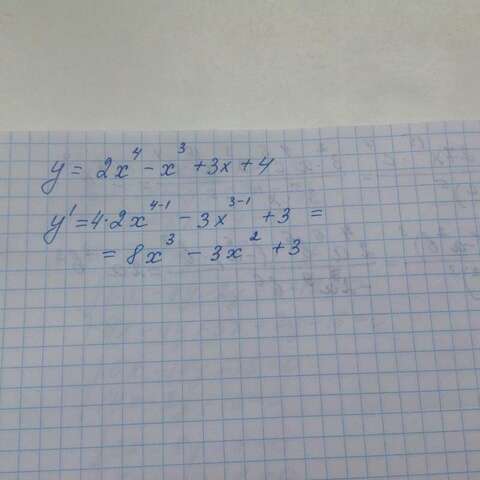 y = 2x⁴ - x³ + 3x + 4
y' = 4·2x⁴⁻¹ - 3x³⁻¹ + 3 =
= 8x³ - 3x² + 3